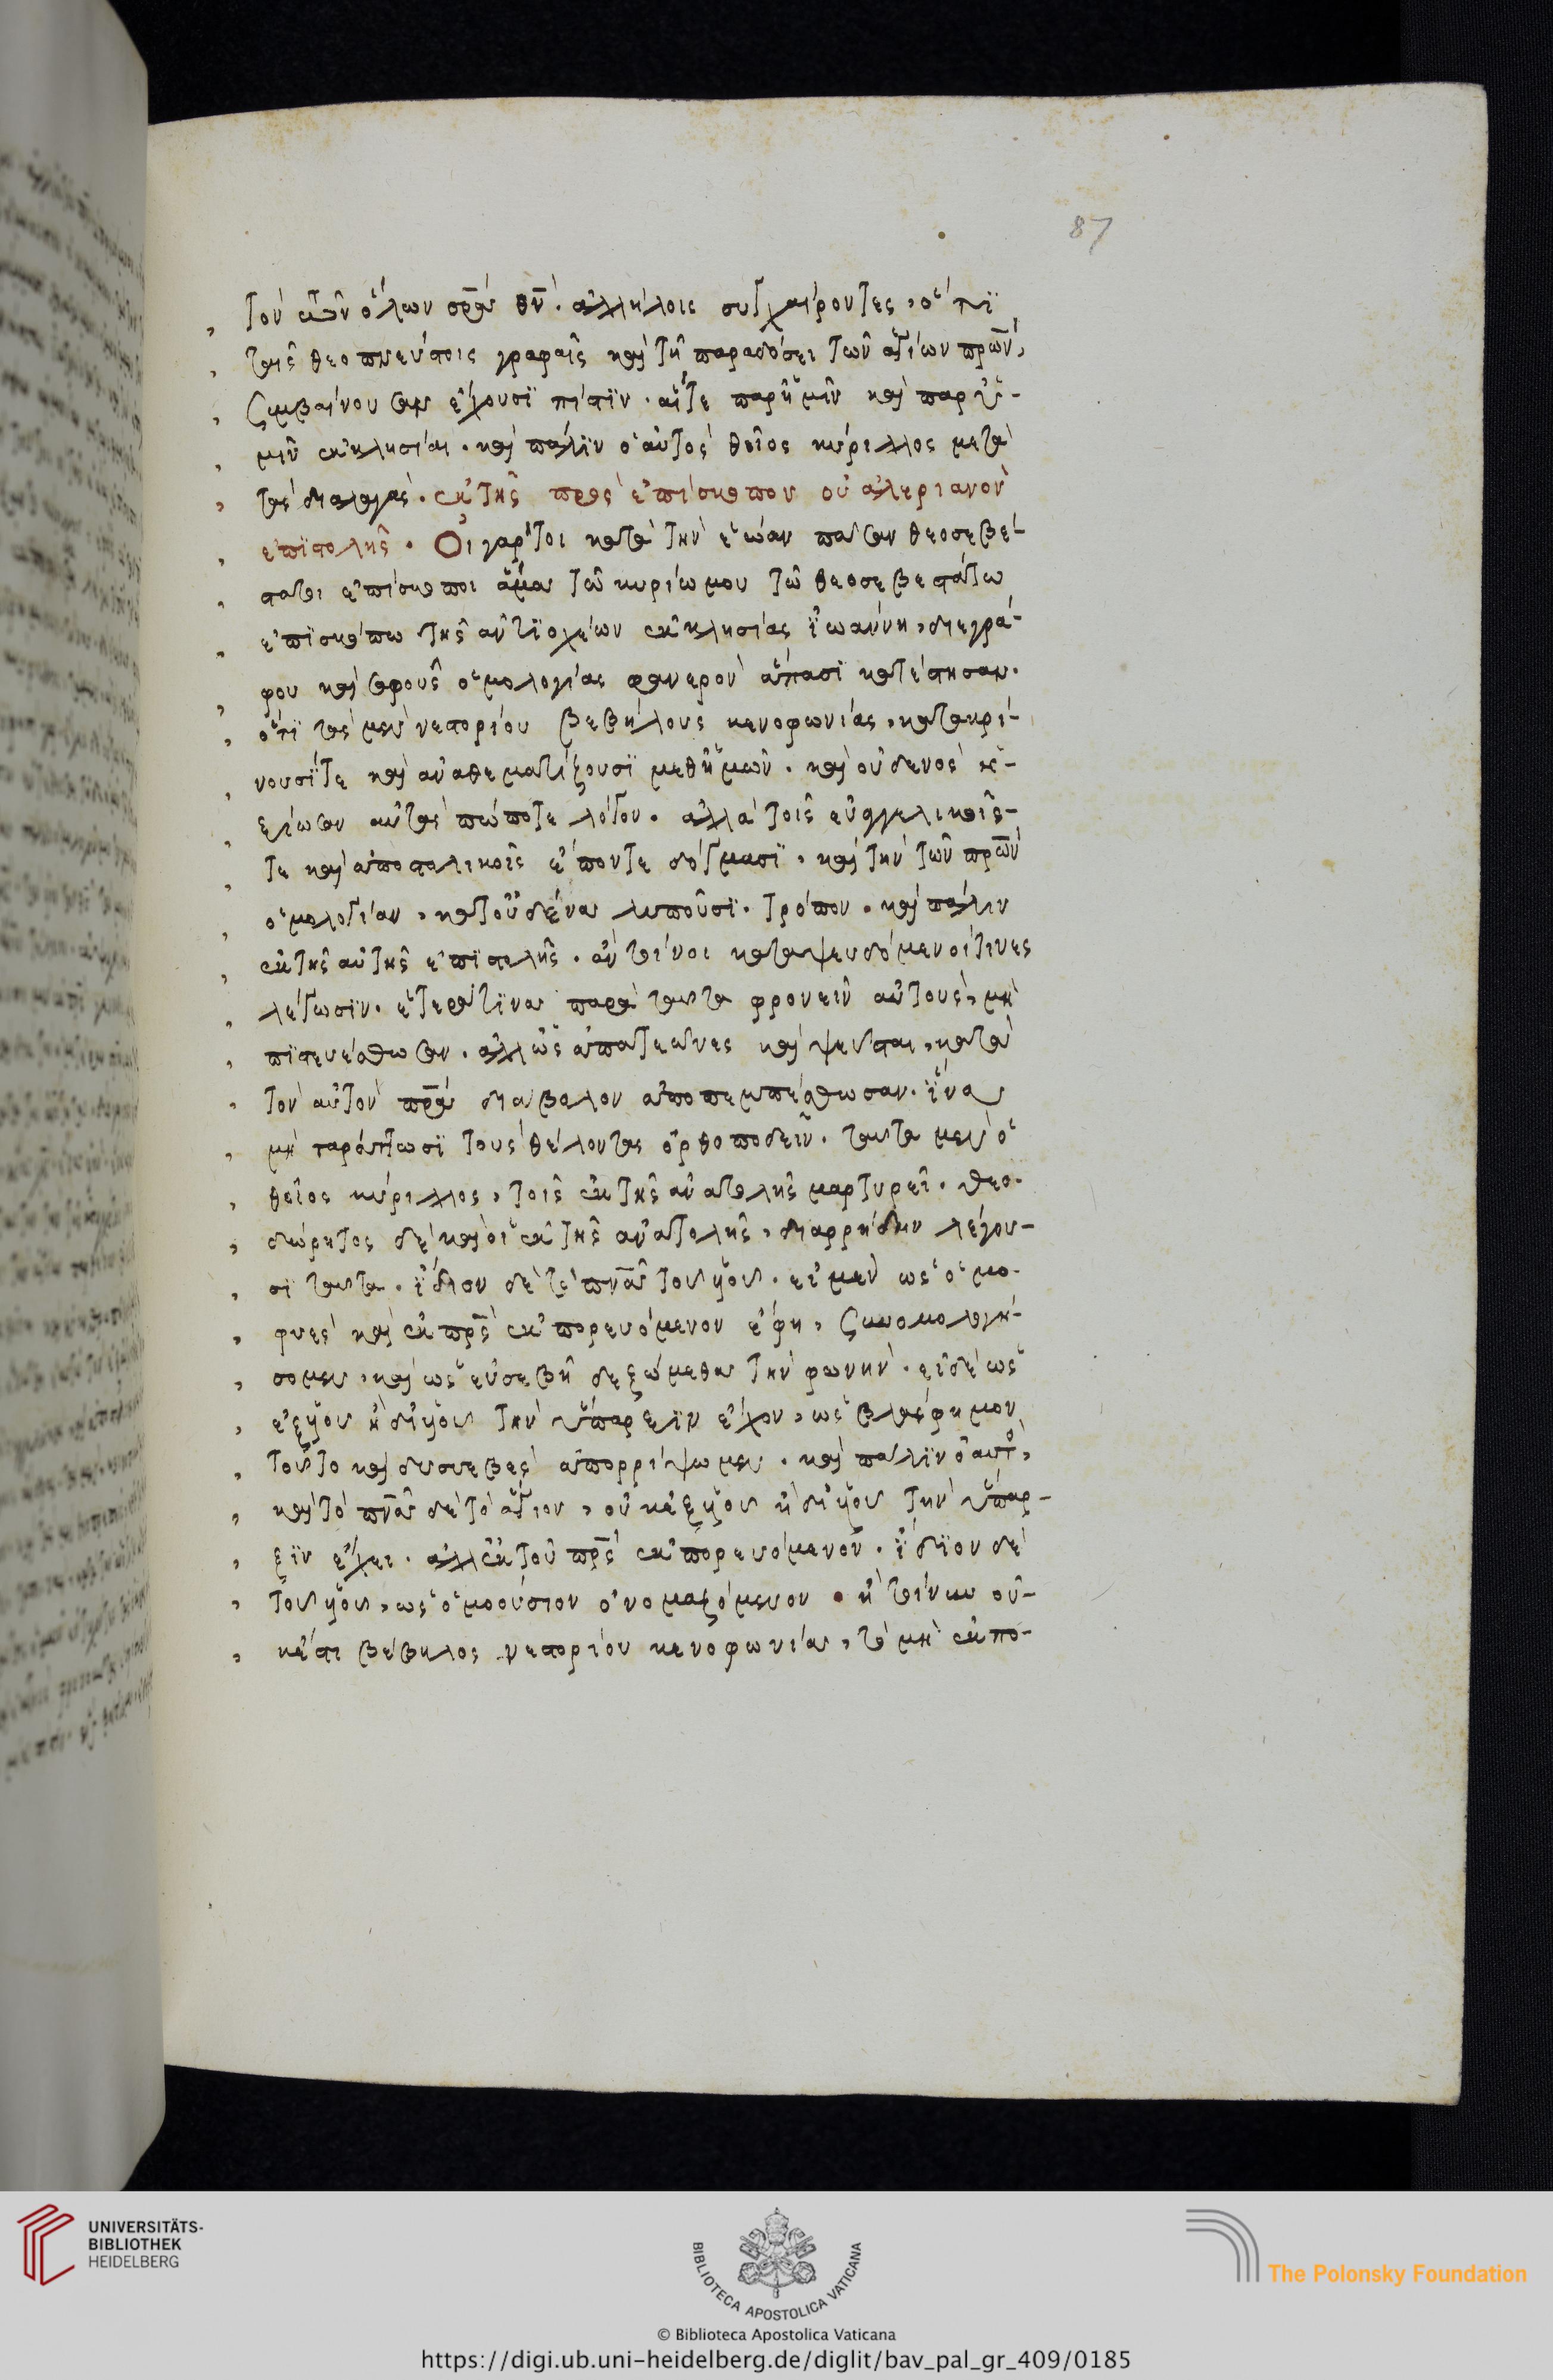 87
τὸν τῶν ὅλων σρα θν. ἀλλήλοις συγχαίροντες, ὅτι
ταῖς θεοπνεύστοις γραφαῖς καὶ τῆ παραδόσει τῶν ἁγίων πρων,
συμβαίνουσαν ἔχουσι πίστιν. αἵτε παρ ἡμῖν καὶ παρ ὑ-
μῖν ἐκκλησίαι. καὶ πάλιν ὁ αὐτὸς θεῖος κύριλλος μετὰ
τὰς διαλαγὰς. ἐκ τῆς πρὸς ἐπίσκοπον οὐαλεριανὸν
ἐπιστολῆς. Οἱ γάρ τοι κατὰ τὴν ἑώαν πᾶσαν θεοσεβέ-
στατοι ἐπίσκοποι ἅμα τῶ κυρίω μου τῶ θεοσεβεστάτω
ἐπισκόπω τῆς ἀντιοχέων ἐκκλησίας ἰωάννη, διεγρά-
φου καὶ σαφοῦς ὁμολογίας φανερὸν ἅπασι κατέστησαν.
ὅτι τὰς μὲν νεστορίου βεβήλους κενοφωνίας, κατακρί-
νουσί τε καὶ ἀναθεματίζουσι μεθ ἡμῶν. καὶ οὐδενὸς ἠ-
ξίωσαν αὐτὰς πώποτε λόγου. ἀλλὰ τοῖς εὐαγγελικοῖς-
τε καὶ ἀποστολικοῖς ἕπονται δόγμασι, καὶ τὴν τῶν πρων
ὁμολογίαν, κατ οὐδένα λυποῦσι τρόπον. καὶ πάλιν
ἐκ τῆς αὐτῆς ἐπιστολῆς. ἂν τοίνυν καταψευδόμενοί τινες
λέγωσιν. ἕτερά τινα παρὰ ταῦτα φρονεῖν αὐτοὺς, μὴ
πιστευέσθωσαν. ἀλλ ὡς ἀπατεῶνες καὶ ψεῦσται, κατὰ
τὸν αὐτὸν πρα διάβολον ἀποπεμπέσθωσαν. ἵνα
μὴ ταράττωσι τοὺς θέλοντας ὀρθοποδεῖν. ταῦτα μὲν ὁ
θεῖος κύριλλος, τοῖς ἐκ τῆς ἀνατολῆς μαρτυρεῖ. θεο-
δώρητος δὲ καὶ οἱ ἐκ τῆς ἀνατολῆς, διαρρήδην λέγου-
σι ταῦτα. ἴδιον δὲ τὸ πνα τοῦ υἱοῦ. εἰ μὲν ὡς ὁμο-
φυὲς καὶ ἐκ πρς ἐκπορευόμενον ἔφη, συνομολογή-
σομεν, καὶ ὡς εὐσεβῆ δεξώμεθα τὴν φωνήν. εἰ δὲ ὡς
ἐξ υἱοῦ ἢ δι υἱοῦ τὴν ὕπαρξιν ἔχον, ὡς βλάσφημον
τοῦτο καὶ δυσσεβὲς ἀπορρίψωμεν. καὶ πάλιν ὁ αὐτὸ,
καὶ τὸ πνα δὲ τὸ ἅγιον, οὐκ ἐξ υἱοῦ ἢ δι υἱοῦ τὴν ὕπαρ-
ξιν ἔχει. ἀλλ ἐκ τοῦ πρς ἐκπορευόμενον. ἴδιον δὲ
τοῦ υἱοῦ, ὡς ὁμοούσιον ὀνομαζόμενον. ἢ τοίνυν οὐ-
κέτι βέβηλος νεστορίου κενοφωνία, τὸ μὴ ἐκ πο-
UNIVERSITÄTS-
BIBLIOTHEK
HEIDELBERG
BIBLIOTECA APOSTOLICA VATICANA
The Polonsky Foundation
© Biblioteca Apostolica Vaticana
https://digi.ub.uni-heidelberg.de/diglit/bav_pal_gr_409/0185